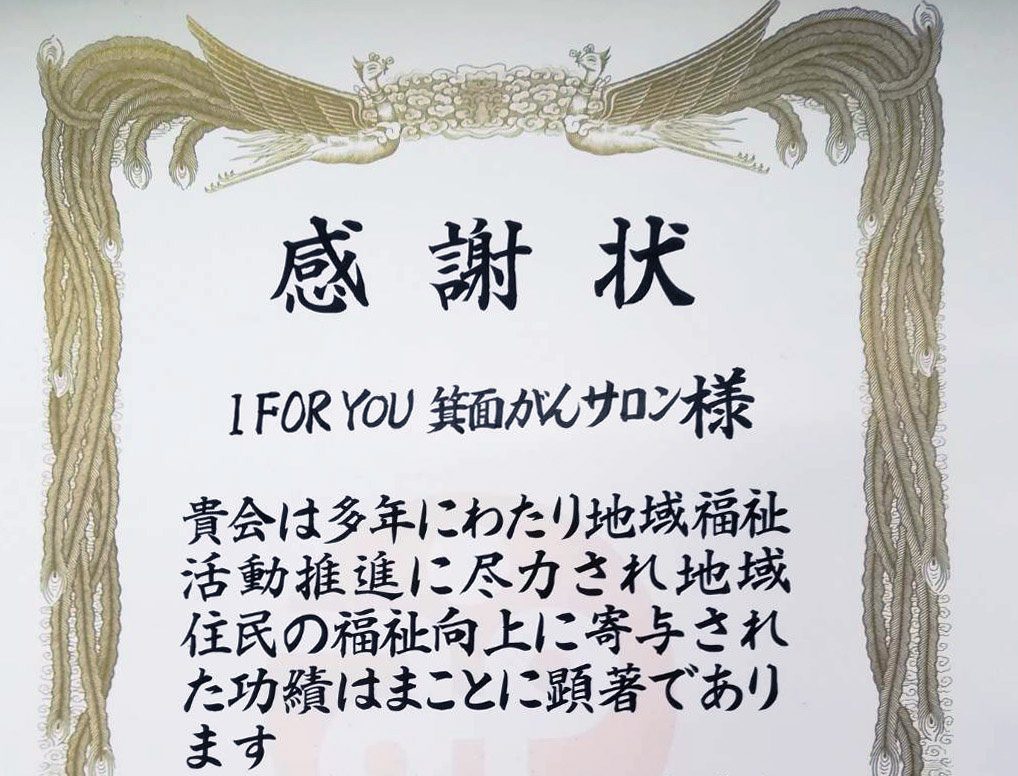 感謝状
I FOR YOU 箕面がんサロン様
貴会は多年にわたり地域福祉
活動推進に尽力され地域
住民の福祉向上に寄与され
た功績はまことに顕著であり
ます